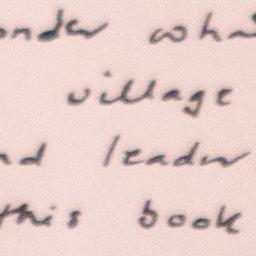 onder wh
village
nd leader
this book